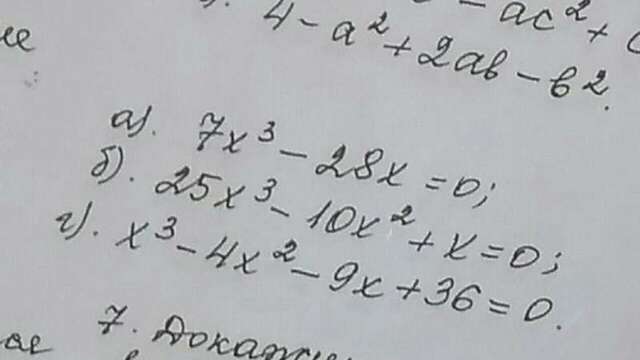 - ac² +
4 - a² + 2ab - b².
а). 7x³ - 28x = 0;
б). 25x³ - 10x² + x = 0;
г). x³ - 4x² - 9x + 36 = 0.
7.